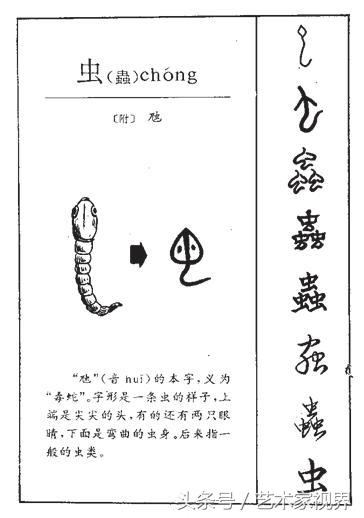 虫(蟲)chóng
〔附〕 虺
“虺”(音 huǐ)的本字,义为
“毒蛇”。字形是一条虫的样子,上
端是尖尖的头,有的还有两只眼
睛,下面是弯曲的虫身。后来指一
般的虫类。
蟲
蟲
蟲
虫
头条号/艺术家视界